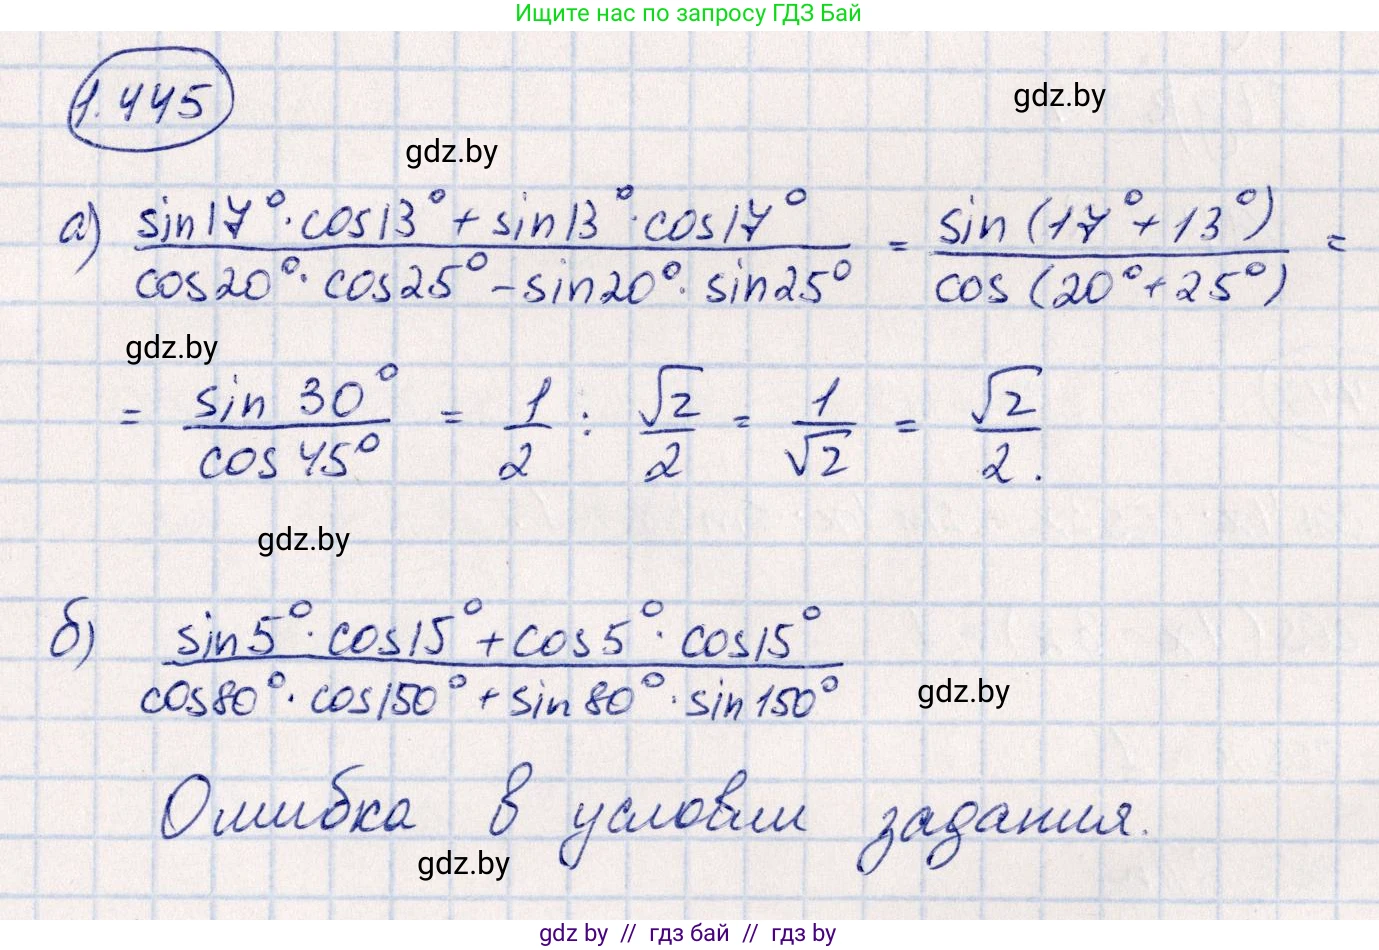 Ищите нас по запросу ГДЗ Бай
1.445
gdz.by
gdz.by
а) (sin17° · cos13° + sin13° · cos17°) / (cos20° · cos25° - sin20° · sin25°) = sin(17° + 13°) / cos(20° + 25°) =
gdz.by
= sin 30° / cos 45° = 1/2 : √2/2 = 1/√2 = √2/2.
gdz.by
б) (sin5° · cos15° + cos5° · cos15°) / (cos80° · cos150° + sin80° · sin150°)
gdz.by
Ошибка в условии задания.
gdz.by
gdz by // гдз бай // гдз by